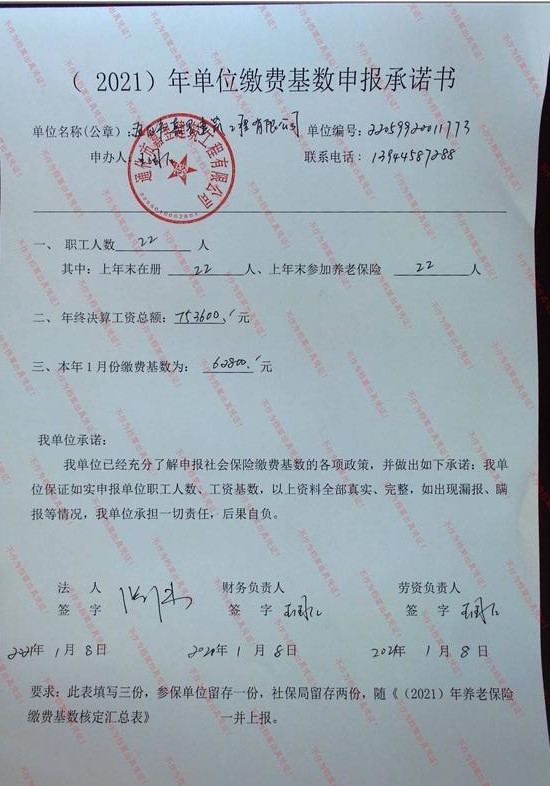 （ 2021）年单位缴费基数申报承诺书
单位名称(公章)： 工程有限公司 单位编号：22059920011773
申办人： 联系电话：13944587288
通化市 建筑工程有限公司
一、 职工人数 22 人
其中：上年末在册 22 人、上年末参加养老保险 22 人
二、年终决算工资总额：753600. 元
三、本年1月份缴费基数为： 62800. 元
我单位承诺：
我单位已经充分了解申报社会保险缴费基数的各项政策，并做出如下承诺：我单
位保证如实申报单位职工人数、工资基数，以上资料全部真实、完整，如出现漏报、瞒
报等情况，我单位承担一切责任，后果自负。
法 人 财务负责人 劳资负责人
签 字 签 字 签 字
2021年 1 月 8 日 2021年 1 月 8 日 2021年 1 月 8 日
要求：此表填写三份，参保单位留存一份，社保局留存两份，随《（2021）年养老保险
缴费基数核定汇总表》 一并上报。